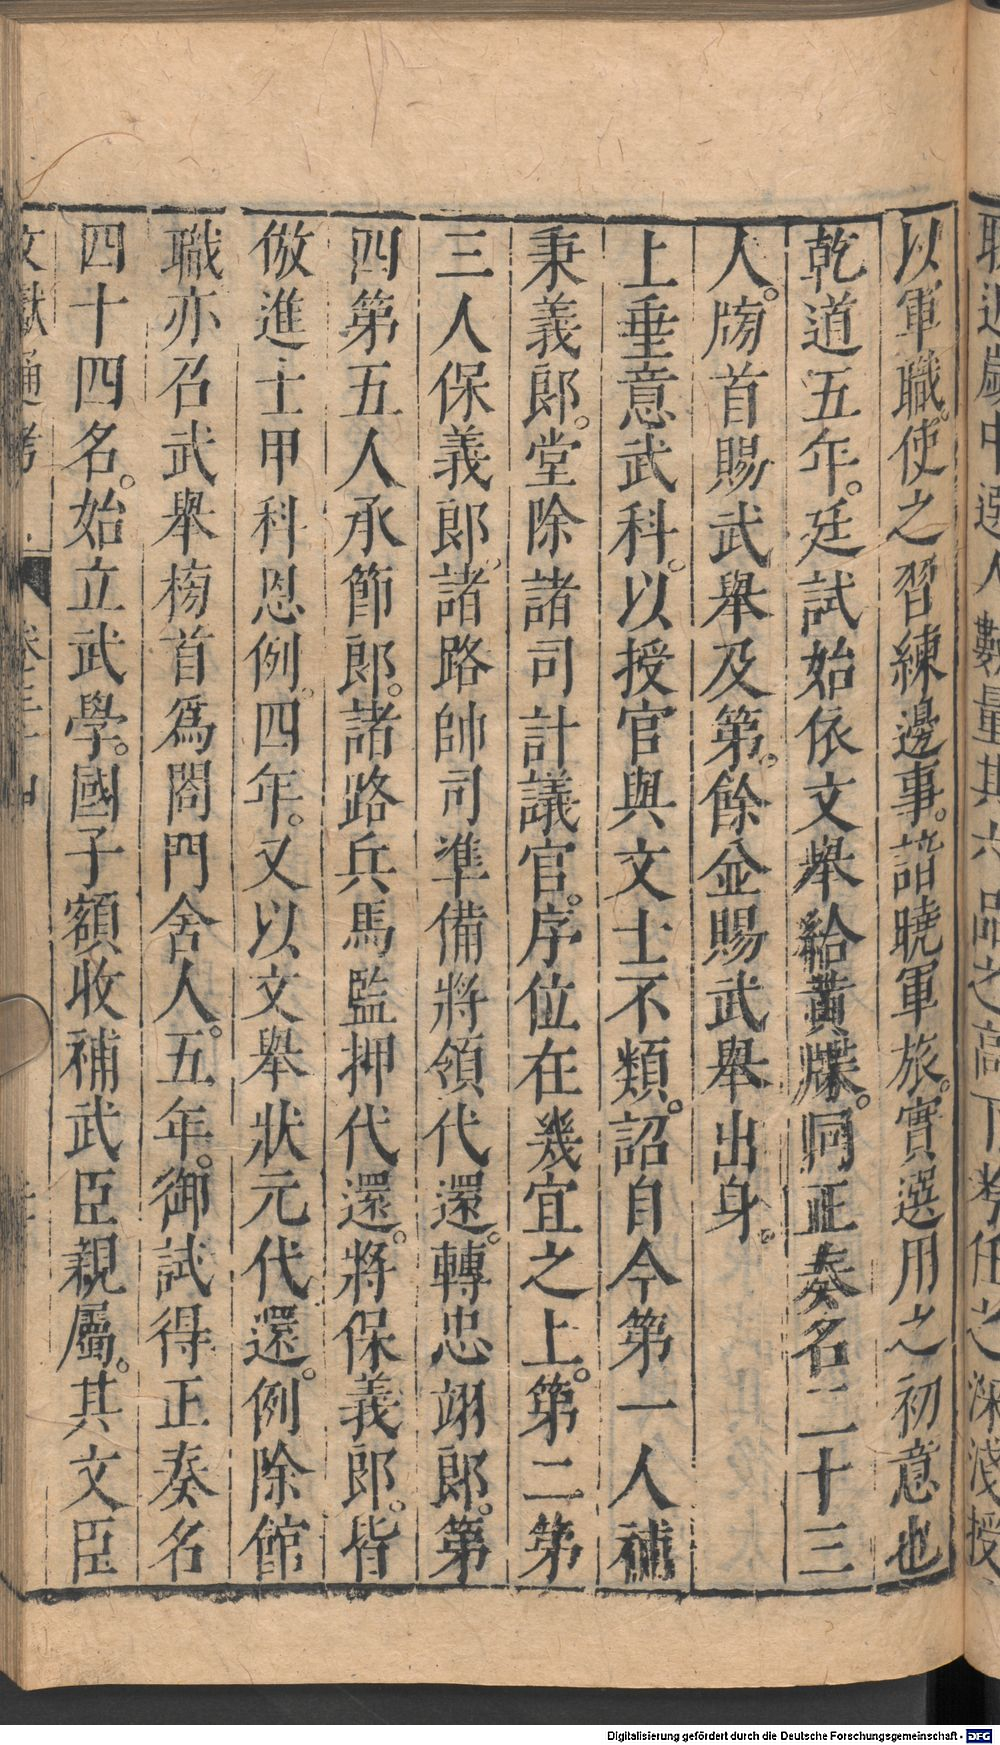 以軍職。使之習練邊事。諳曉軍旅。實選用之初意也
乾道五年。廷試始依文舉給黃牒。同正奏名二十三
人。牓首賜武舉及第。餘並賜武舉出身。
上垂意武科。以授官與文士不類。詔自今第一人補
秉義郎。堂除諸司計議官。序位在幾宜之上。第二第
三人保義郎。諸路帥司準備將領代還。轉忠翊郎。第
四第五人承節郎。諸路兵馬監押代還。將保義郎。皆
倣進士甲科恩例。四年。又以文舉狀元代還。例除館
職亦召武舉榜首爲閤門舍人。五年。御試得正奏名
四十四名。始立武學。國子額收補武臣親屬。其文臣
文獻通考 卷三十四
Digitalisierung gefördert durch die Deutsche Forschungsgemeinschaft - DFG